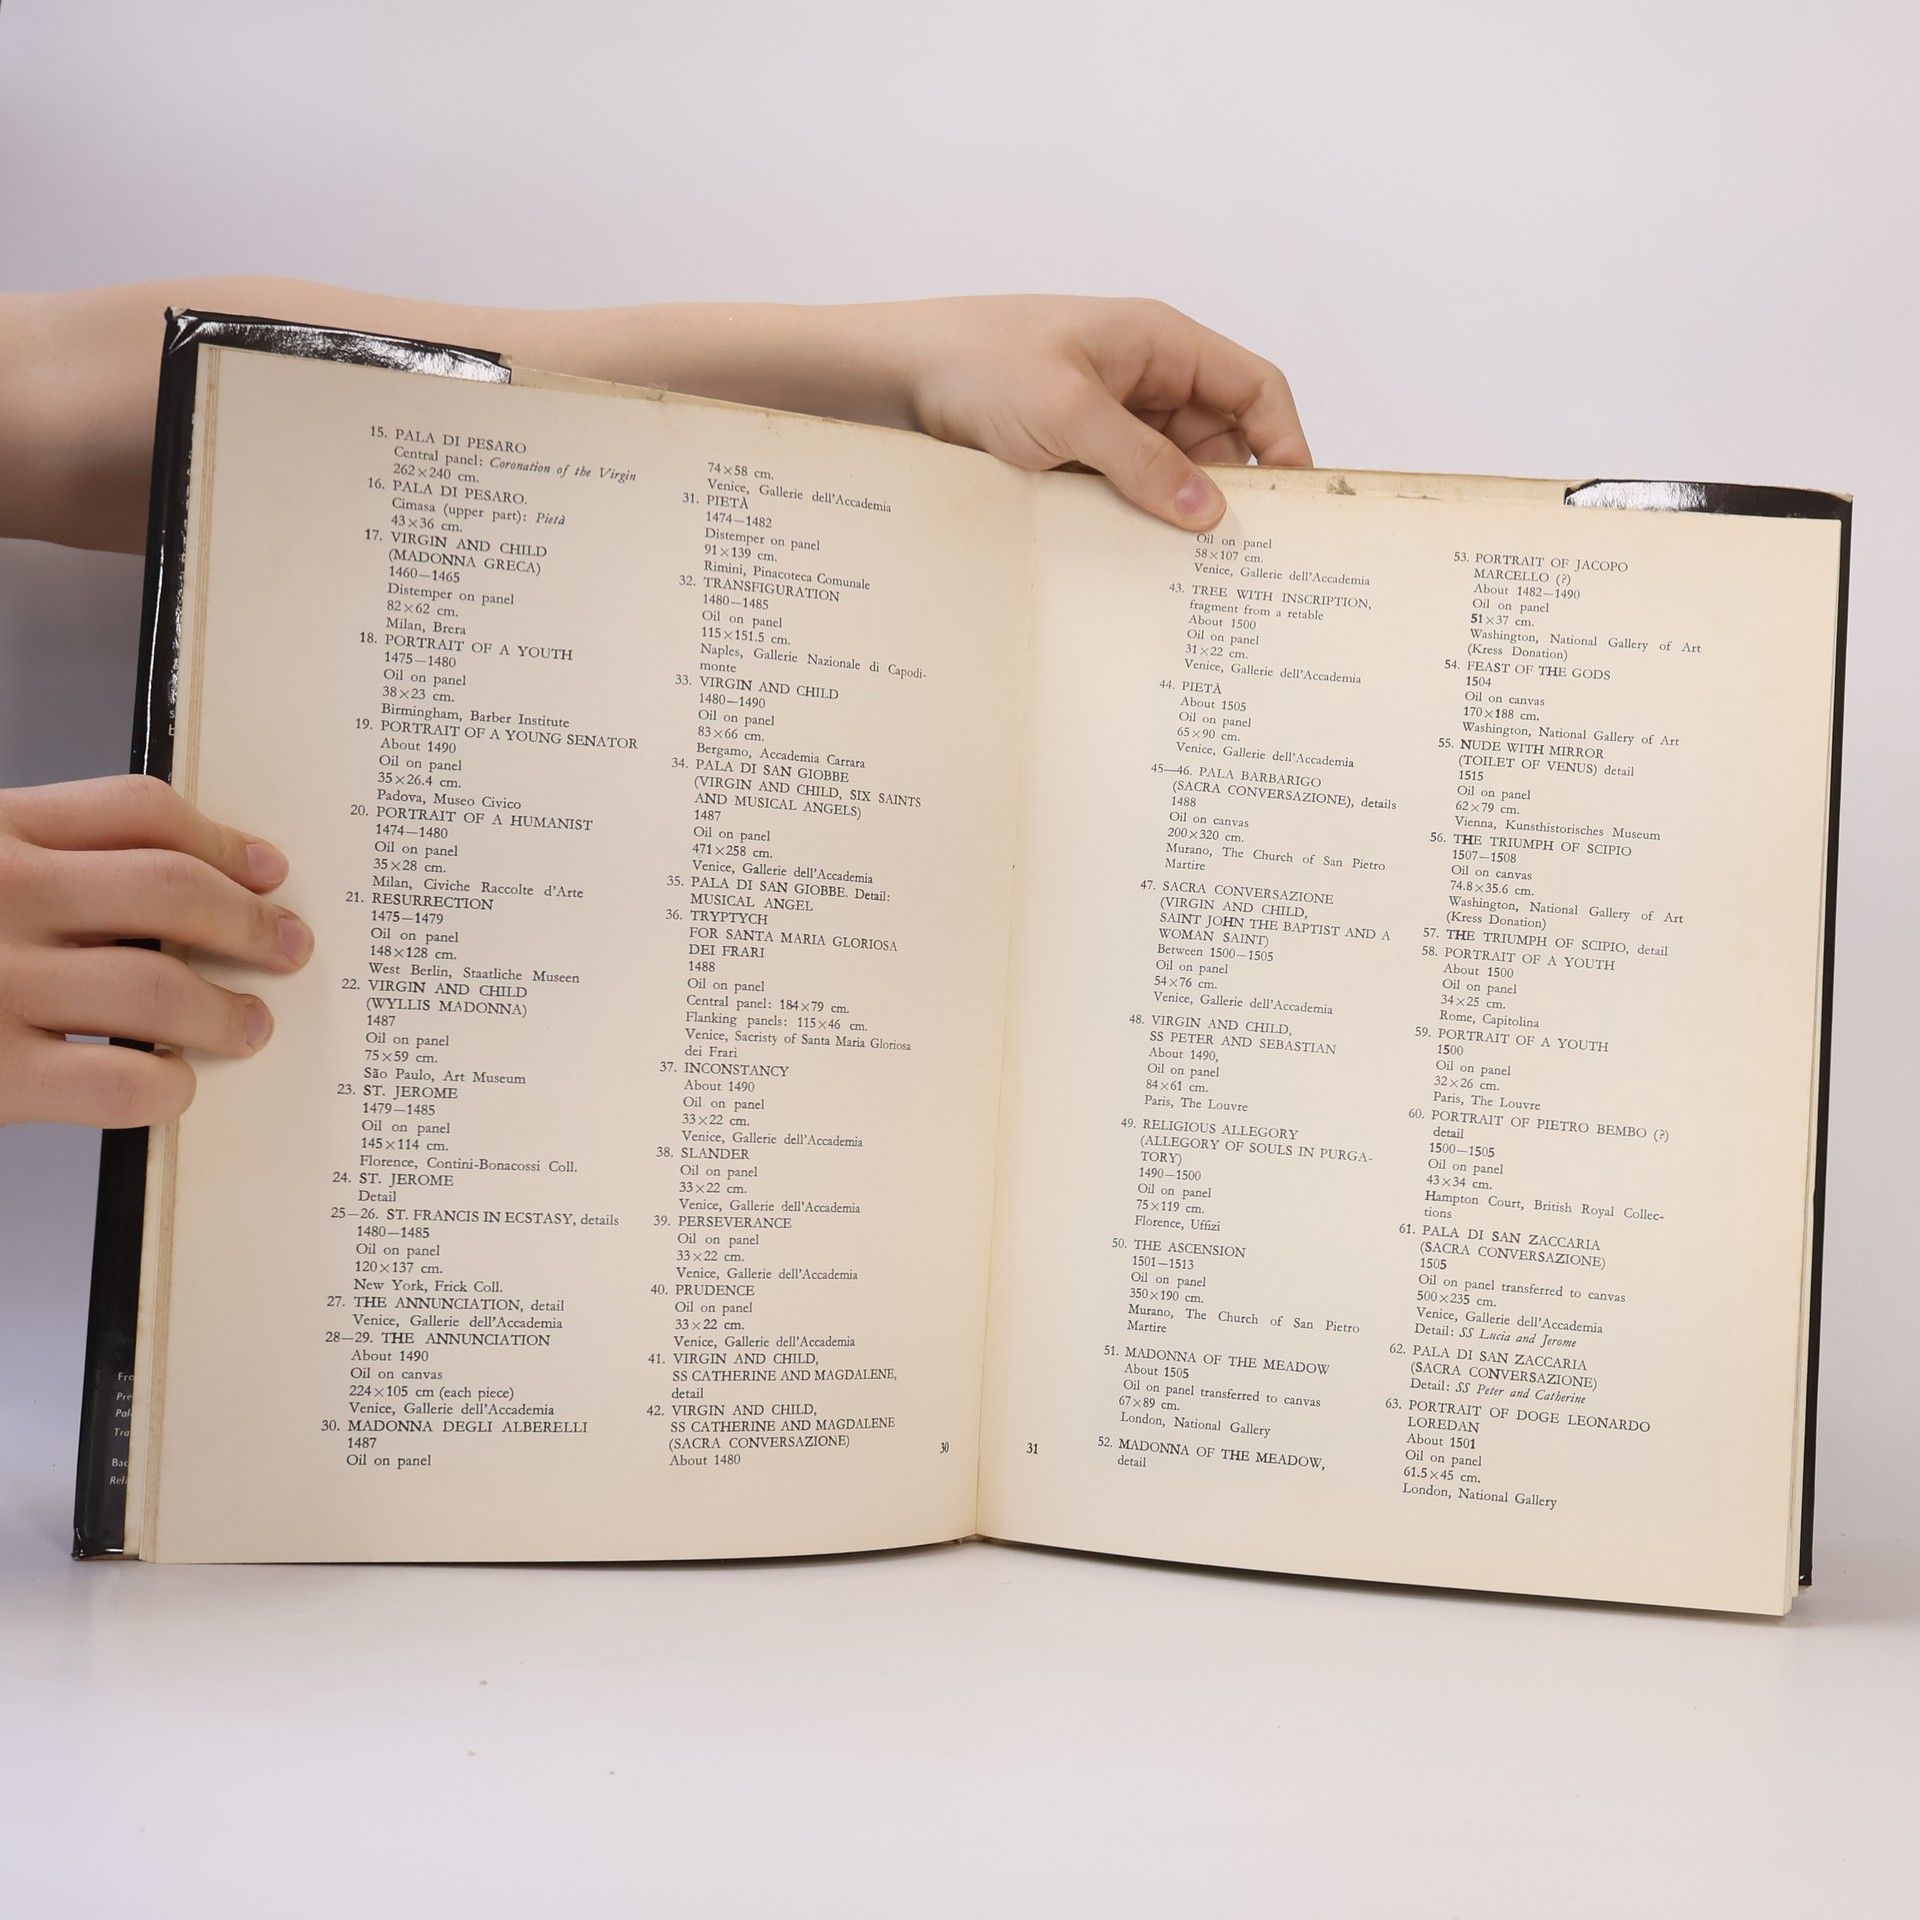 15. PALA DI PESARO
Central panel: Coronation of the Virgin
262×240 cm.
16. PALA DI PESARO.
Cimasa (upper part): Pietà
43×36 cm.
17. VIRGIN AND CHILD
(MADONNA GRECA)
1460—1465
Distemper on panel
82×62 cm.
Milan, Brera
18. PORTRAIT OF A YOUTH
1475—1480
Oil on panel
38×23 cm.
Birmingham, Barber Institute
19. PORTRAIT OF A YOUNG SENATOR
About 1490
Oil on panel
35×26.4 cm.
Padova, Museo Civico
20. PORTRAIT OF A HUMANIST
1474—1480
Oil on panel
35×28 cm.
Milan, Civiche Raccolte d'Arte
21. RESURRECTION
1475—1479
Oil on panel
148×128 cm.
West Berlin, Staatliche Museen
22. VIRGIN AND CHILD
(WYLLIS MADONNA)
1487
Oil on panel
75×59 cm.
São Paulo, Art Museum
23. ST. JEROME
1479—1485
Oil on panel
145×114 cm.
Florence, Contini-Bonacossi Coll.
24. ST. JEROME
Detail
25—26. ST. FRANCIS IN ECSTASY, details
1480—1485
Oil on panel
120×137 cm.
New York, Frick Coll.
27. THE ANNUNCIATION, detail
Venice, Gallerie dell'Accademia
28—29. THE ANNUNCIATION
About 1490
Oil on canvas
224×105 cm (each piece)
Venice, Gallerie dell'Accademia
30. MADONNA DEGLI ALBERELLI
1487
Oil on panel
74×58 cm.
Venice, Gallerie dell'Accademia
31. PIETÀ
1474—1482
Distemper on panel
91×139 cm.
Rimini, Pinacoteca Comunale
32. TRANSFIGURATION
1480—1485
Oil on panel
115×151.5 cm.
Naples, Gallerie Nazionale di Capodi-
monte
33. VIRGIN AND CHILD
1480—1490
Oil on panel
83×66 cm.
Bergamo, Accademia Carrara
34. PALA DI SAN GIOBBE
(VIRGIN AND CHILD, SIX SAINTS
AND MUSICAL ANGELS)
1487
Oil on panel
471×258 cm.
Venice, Gallerie dell'Accademia
35. PALA DI SAN GIOBBE. Detail:
MUSICAL ANGEL
36. TRYPTYCH
FOR SANTA MARIA GLORIOSA
DEI FRARI
1488
Oil on panel
Central panel: 184×79 cm.
Flanking panels: 115×46 cm.
Venice, Sacristy of Santa Maria Gloriosa
dei Frari
37. INCONSTANCY
About 1490
Oil on panel
33×22 cm.
Venice, Gallerie dell'Accademia
38. SLANDER
Oil on panel
33×22 cm.
Venice, Gallerie dell'Accademia
39. PERSEVERANCE
Oil on panel
33×22 cm.
Venice, Gallerie dell'Accademia
40. PRUDENCE
Oil on panel
33×22 cm.
Venice, Gallerie dell'Accademia
41. VIRGIN AND CHILD,
SS CATHERINE AND MAGDALENE,
detail
42. VIRGIN AND CHILD,
SS CATHERINE AND MAGDALENE
(SACRA CONVERSAZIONE)
About 1480
30
Oil on panel
58×107 cm.
Venice, Gallerie dell'Accademia
43. TREE WITH INSCRIPTION,
fragment from a retable
About 1500
Oil on panel
31×22 cm.
Venice, Gallerie dell'Accademia
44. PIETÀ
About 1505
Oil on panel
65×90 cm.
Venice, Gallerie dell'Accademia
45—46. PALA BARBARIGO
(SACRA CONVERSAZIONE), details
1488
Oil on canvas
200×320 cm.
Murano, The Church of San Pietro
Martire
47. SACRA CONVERSAZIONE
(VIRGIN AND CHILD,
SAINT JOHN THE BAPTIST AND A
WOMAN SAINT)
Between 1500—1505
Oil on panel
54×76 cm.
Venice, Gallerie dell'Accademia
48. VIRGIN AND CHILD,
SS PETER AND SEBASTIAN
About 1490,
Oil on panel
84×61 cm.
Paris, The Louvre
49. RELIGIOUS ALLEGORY
(ALLEGORY OF SOULS IN PURGA-
TORY)
1490—1500
Oil on panel
75×119 cm.
Florence, Uffizi
50. THE ASCENSION
1501—1513
Oil on panel
350×190 cm.
Murano, The Church of San Pietro
Martire
51. MADONNA OF THE MEADOW
About 1505
Oil on panel transferred to canvas
67×89 cm.
London, National Gallery
52. MADONNA OF THE MEADOW,
detail
31
53. PORTRAIT OF JACOPO
MARCELLO (?)
About 1482—1490
Oil on panel
51×37 cm.
Washington, National Gallery of Art
(Kress Donation)
54. FEAST OF THE GODS
1504
Oil on canvas
170×188 cm.
Washington, National Gallery of Art
55. NUDE WITH MIRROR
(TOILET OF VENUS) detail
1515
Oil on panel
62×79 cm.
Vienna, Kunsthistorisches Museum
56. THE TRIUMPH OF SCIPIO
1507—1508
Oil on canvas
74.8×35.6 cm.
Washington, National Gallery of Art
(Kress Donation)
57. THE TRIUMPH OF SCIPIO, detail
58. PORTRAIT OF A YOUTH
About 1500
Oil on panel
34×25 cm.
Rome, Capitolina
59. PORTRAIT OF A YOUTH
1500
Oil on panel
32×26 cm.
Paris, The Louvre
60. PORTRAIT OF PIETRO BEMBO (?)
detail
1500—1505
Oil on panel
43×34 cm.
Hampton Court, British Royal Collec-
tions
61. PALA DI SAN ZACCARIA
(SACRA CONVERSAZIONE)
1505
Oil on panel transferred to canvas
500×235 cm.
Venice, Gallerie dell'Accademia
Detail: SS Lucia and Jerome
62. PALA DI SAN ZACCARIA
(SACRA CONVERSAZIONE)
Detail: SS Peter and Catherine
63. PORTRAIT OF DOGE LEONARDO
LOREDAN
About 1501
Oil on panel
61.5×45 cm.
London, National Gallery